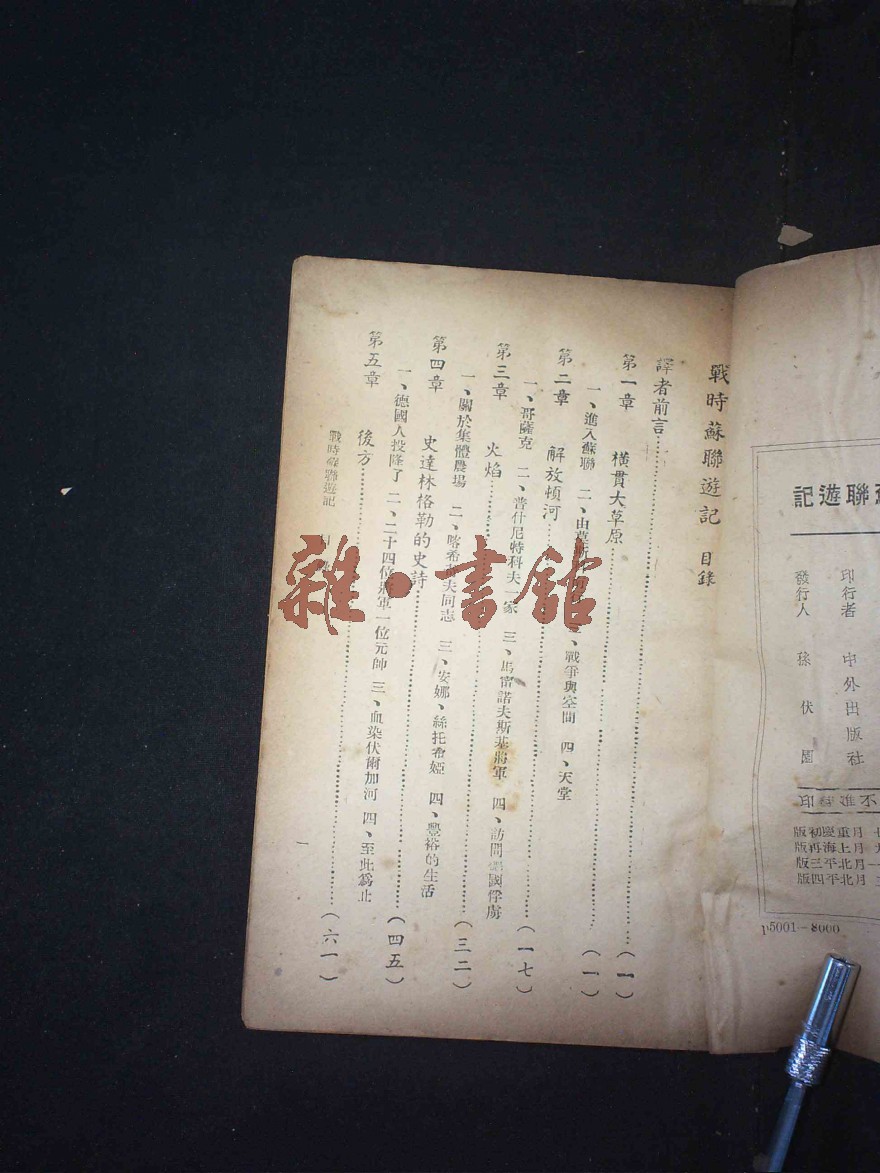 戰時蘇聯遊記 目錄
譯者前言……(一)
第一章 橫貫大草原……(一)
一、進入蘇聯 二、由 三、戰爭與空間 四、天堂
第二章 解放頓河……(一七)
一、哥薩克 二、普什尼特科夫一家 三、馬雷諾夫斯基將軍 四、訪問德國俘虜
第三章 火焰……(三二)
一、關於集體農場 二、喀希 夫同志 三、安娜、絲托希婭 四、豐裕的生活
第四章 史達林格勒的史詩……(四五)
一、德國人投降了 二、二十四位將軍一位元帥 三、血染伏爾加河 四、至此爲止
第五章 後方……(六一)
戰時蘇聯遊記 目
一
雜·書館
聯遊記
印行者 中外出版社
發行人 孫伏園
不准翻印
月重慶初版
月上海再版
一月北平三版
月北平四版
p5001—8000